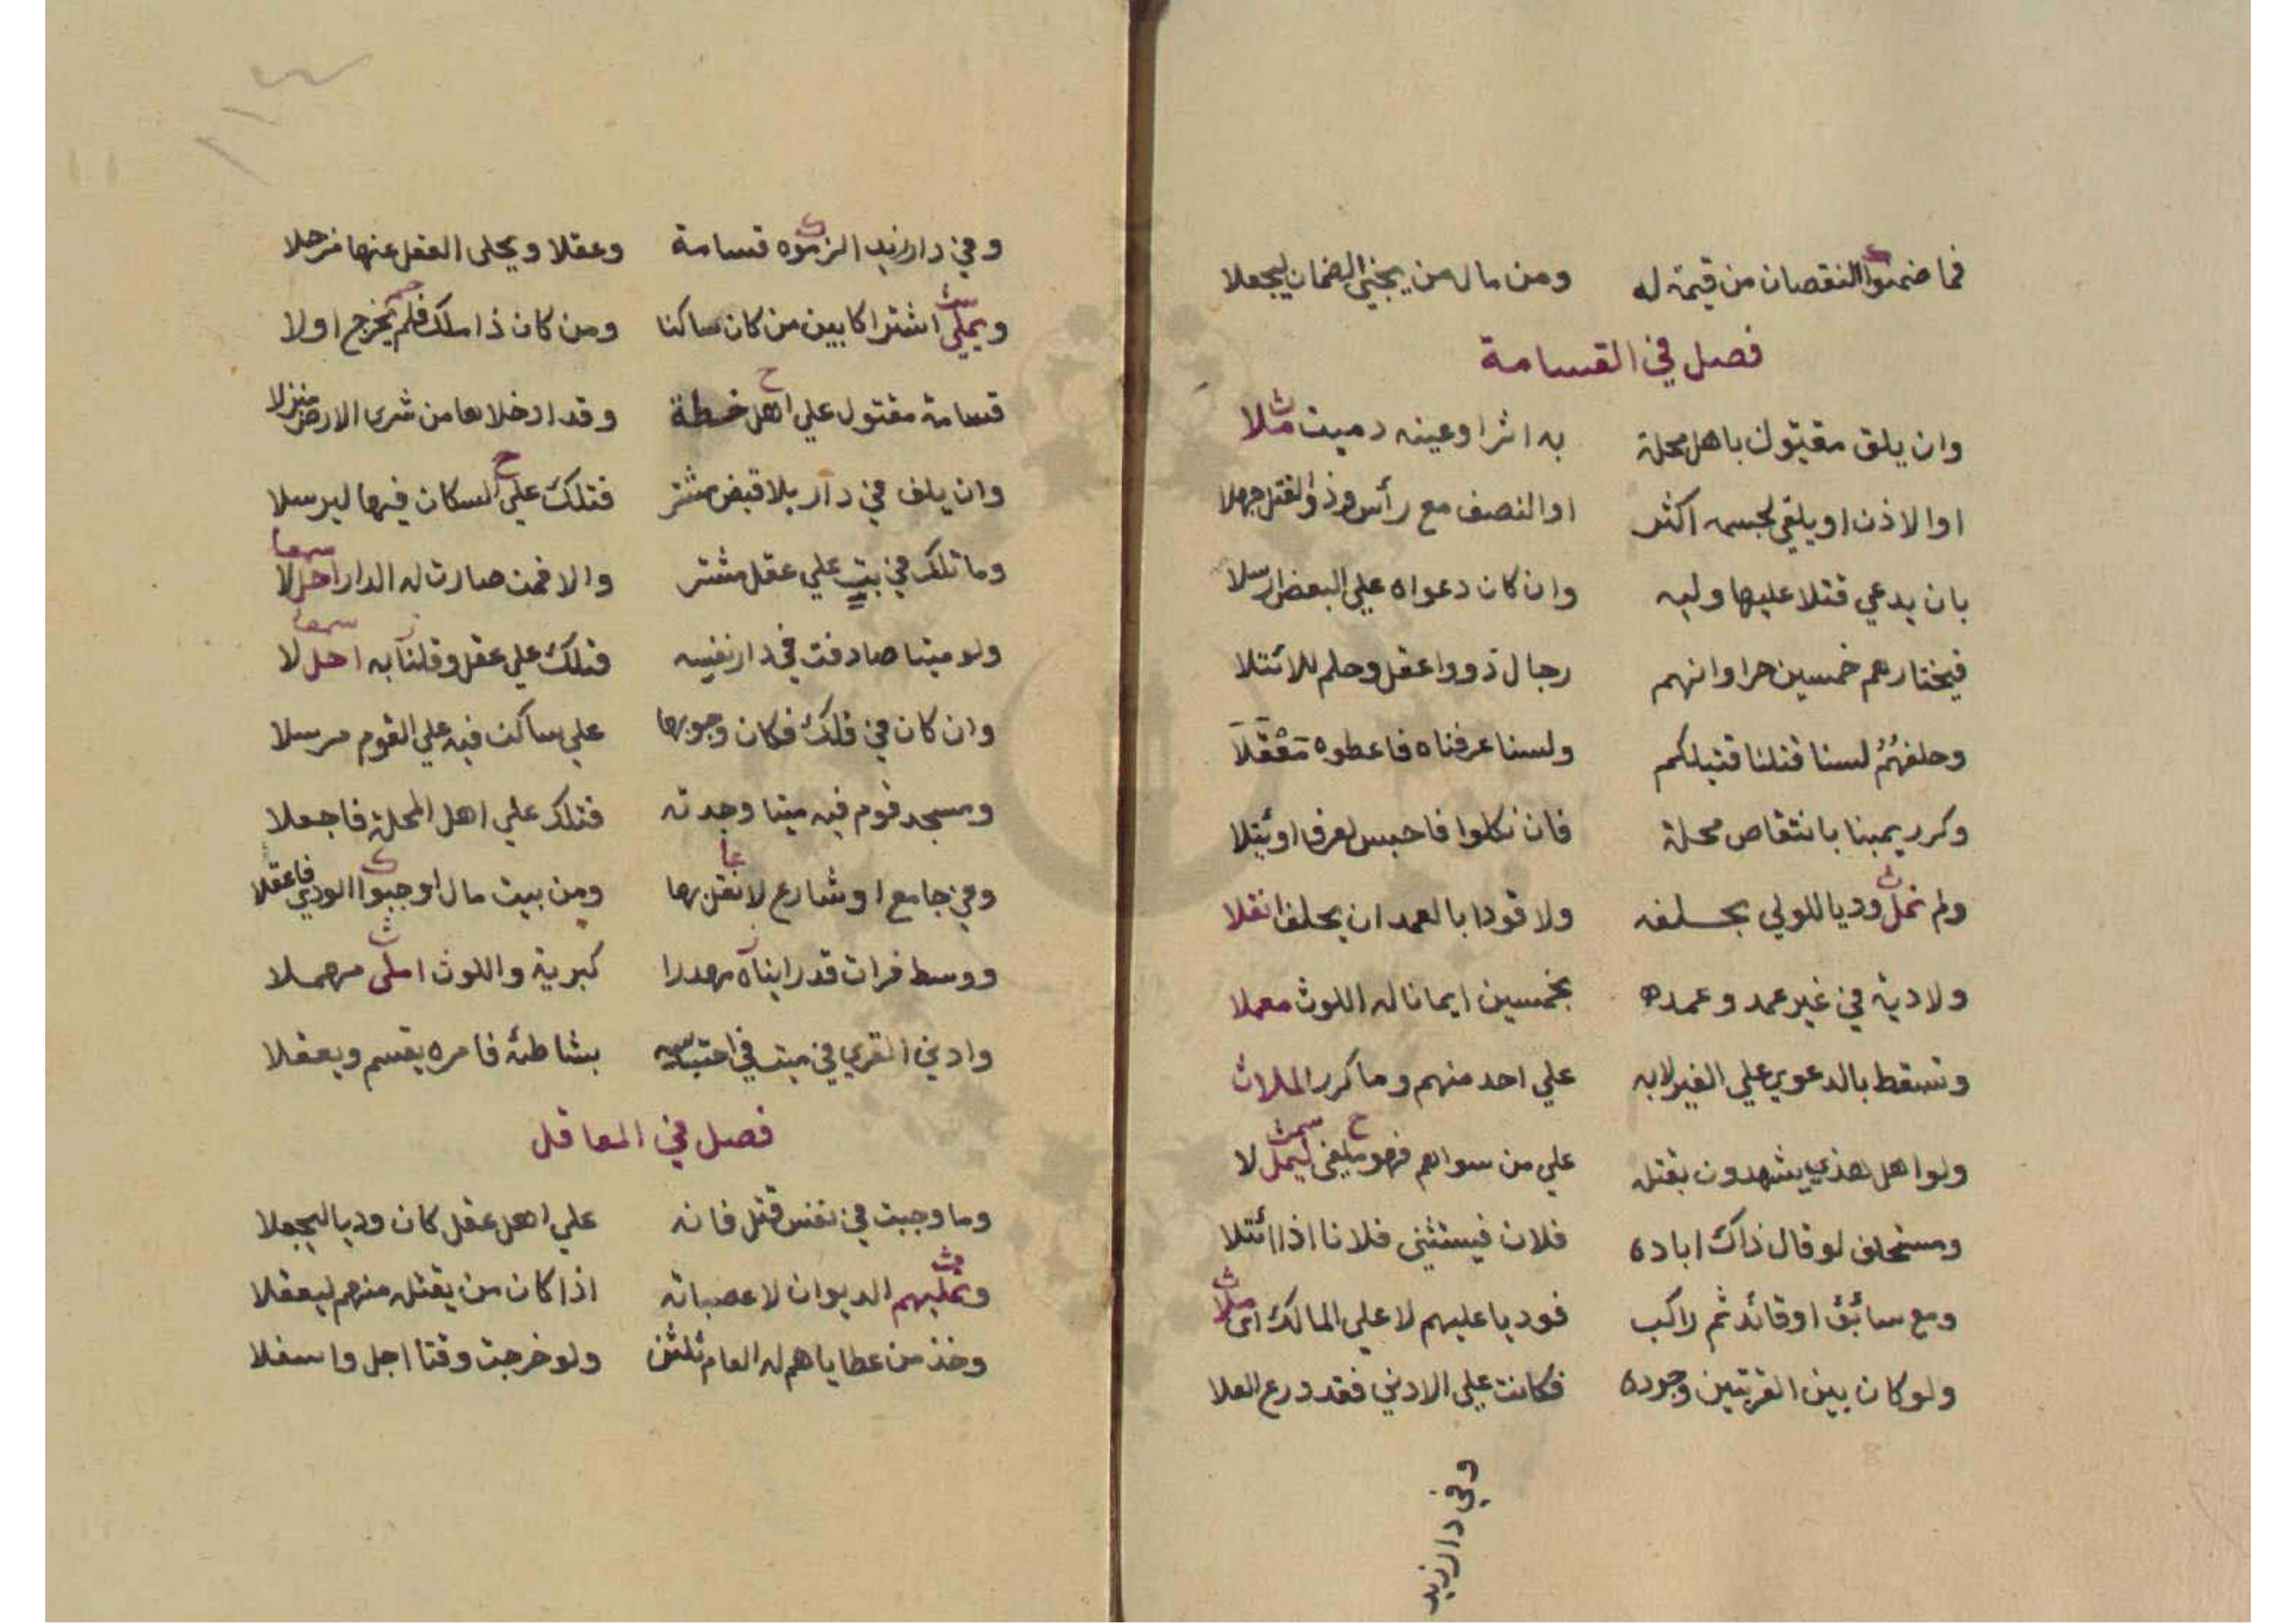 فما ضمنوا النقصان من قيمة له ومن مال من يجني الضمان ليجعلا
فصل في القسامة
وان يلق مقتول باهل محلة به اثر او عينه دميت ملا
او الاذن او يلقي لجسمه اكثر او النصف مع رأس وذو القتل جهلا
بان يدعي قتلا عليها وليه وان كان دعواه علي البعض ارسلا
فيختارهم خمسين حرا وانهم رجال ذووا عقل وحلم للائتلا
وحلفهم لسنا قتلنا قتيلكم ولسنا عرفناه فاعطوه معقلا
وكرر يمينا بانتقاص محلة فان نكلوا فاحبس لعرف او يتلا
ولم نمل وديا للولي بحلفه ولا قودا بالعمد ان يحلف انقلا
ولا دية في غير عمد وعمده بخمسين ايمانا له اللوث معملا
وتسقط بالدعوي علي الغير لا به علي احد منهم وما كرر الملا
ولو اهل هذي يشهدون بقتله علي من سواهم فهو يلغي ليمل لا
ومستحلف لو قال ذاك اباده فلان فيستثني فلانا اذا ائتلا
ومع سائق او قائد ثم راكب فوديا عليهم لا علي المالك
ولو كان بين القريتين وجوده فكانت علي الادني فقد ورع العلا
وفي دار زيد
وفي دار زيد الزموه قسامة وعقلا ويحلي العقل عنها مزحلا
ويملي اشتراكا بين من كان ساكنا ومن كان ذا ملك فلم يخرج اولا
قسامة مقتول علي اهل خطة وقد ادخلا ها من شري الارض منزلا
وان يلف في دار بلا قبض مشتر فتلك علي السكان فيها ليرسلا
وما تلك في بيت علي عقل مشتر والا فمن صارت له الدار احل لا
ولو ميتا صادفت في دار نفسه فتلك علي عقل وقلنا به احل لا
وان كان في فلك فكان وجوبها علي ساكن فيه علي القوم مرسلا
ومسجد قوم فيه ميتا وجدته فتلك علي اهل المحلة فاجعلا
وفي جامع او شارع لا نقل بها ومن بيت مال اوجبوا الودي فاعقلا
ووسط فرات قد راينا مهدرا كبرية واللوث املي مهملا
وادني القري في ميت في احتباسه بشاطئه فامره يقسم ويعقلا
فصل في المعاقل
وما وجبت في نفس قتل فانه علي اهل عقل كان وديا ليجعلا
ونمليهم الديوان لا عصباته اذا كان من يقتل منهم ليعقلا
وخذ من عطاياهم له العام ثلثن ولو خرجت وقتا اجل واسفلا